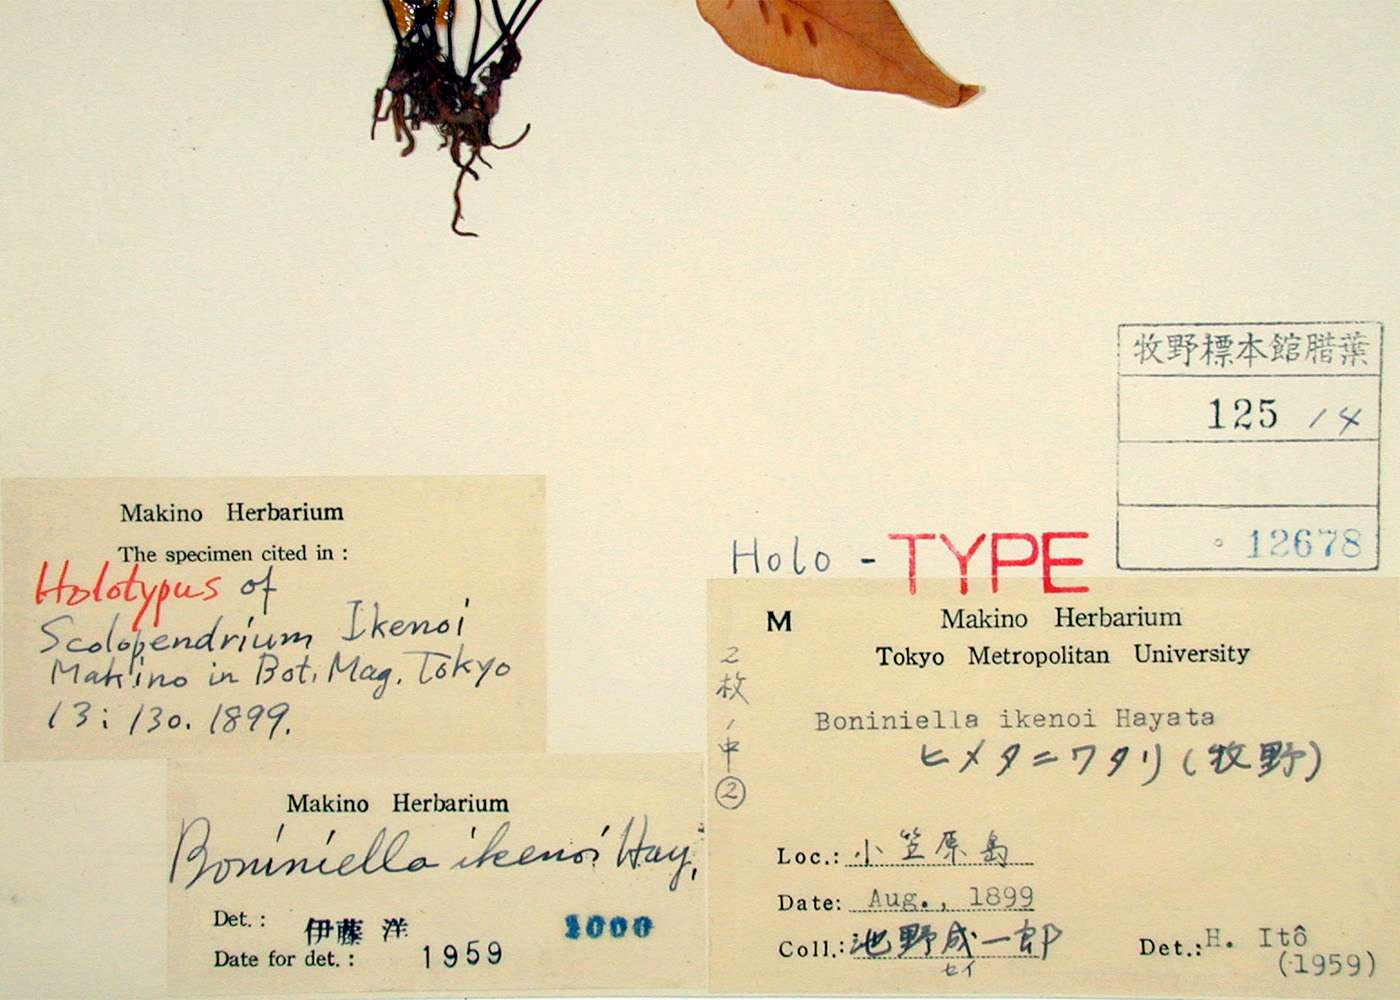 牧野標本館腊葉
125 14
12678
Makino Herbarium
The specimen cited in :
Holotypus of
Scolopendrium Ikenoi
Makino in Bot. Mag. Tokyo
13: 130. 1899.
Makino Herbarium
Boniniella ikenoi Hay.
Det. : 伊藤 洋 1000
Date for det. : 1959
Holo - TYPE
M
Makino Herbarium
Tokyo Metropolitan University
2枚ノ中②
Boniniella ikenoi Hayata
ヒメタニワタリ(牧野)
Loc.: 小笠原島
Date: Aug., 1899
Coll.: 池野成一郎
セイ
Det.: H. Itô
(1959)